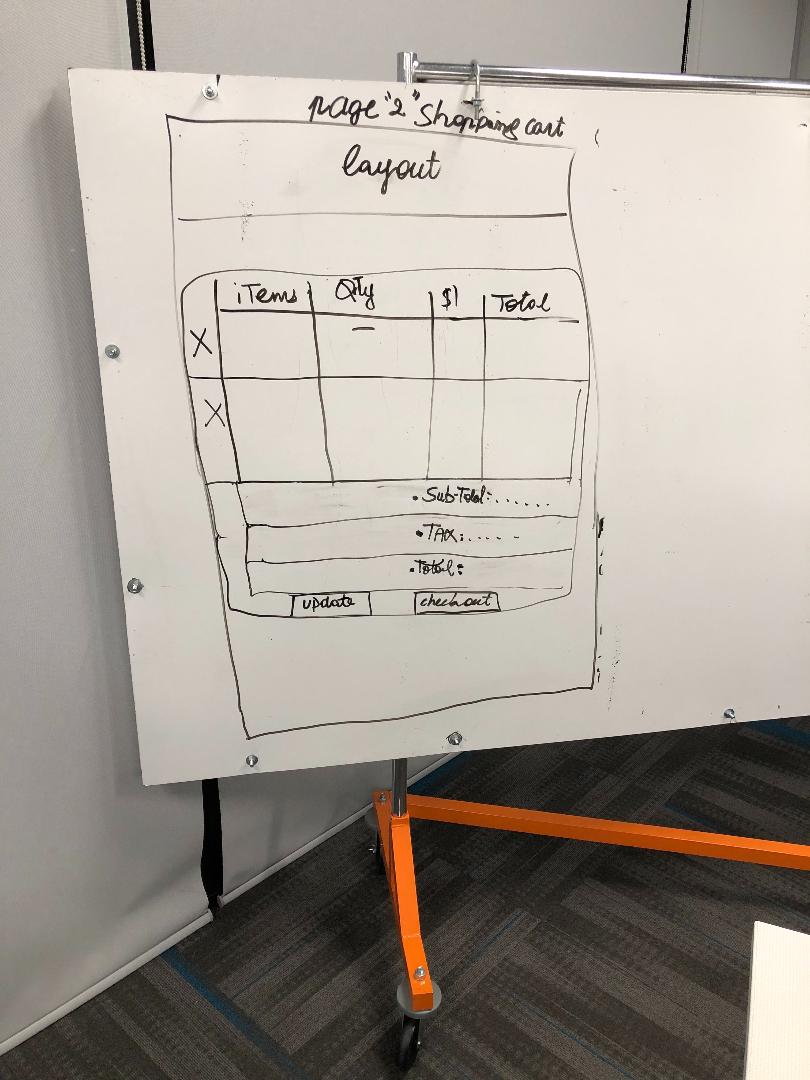 page "2" Shopping cart
layout
iTems Qty $1 Total
X
X
• Sub-Total: ......
• TAX: .... -
• Total:
update checkout